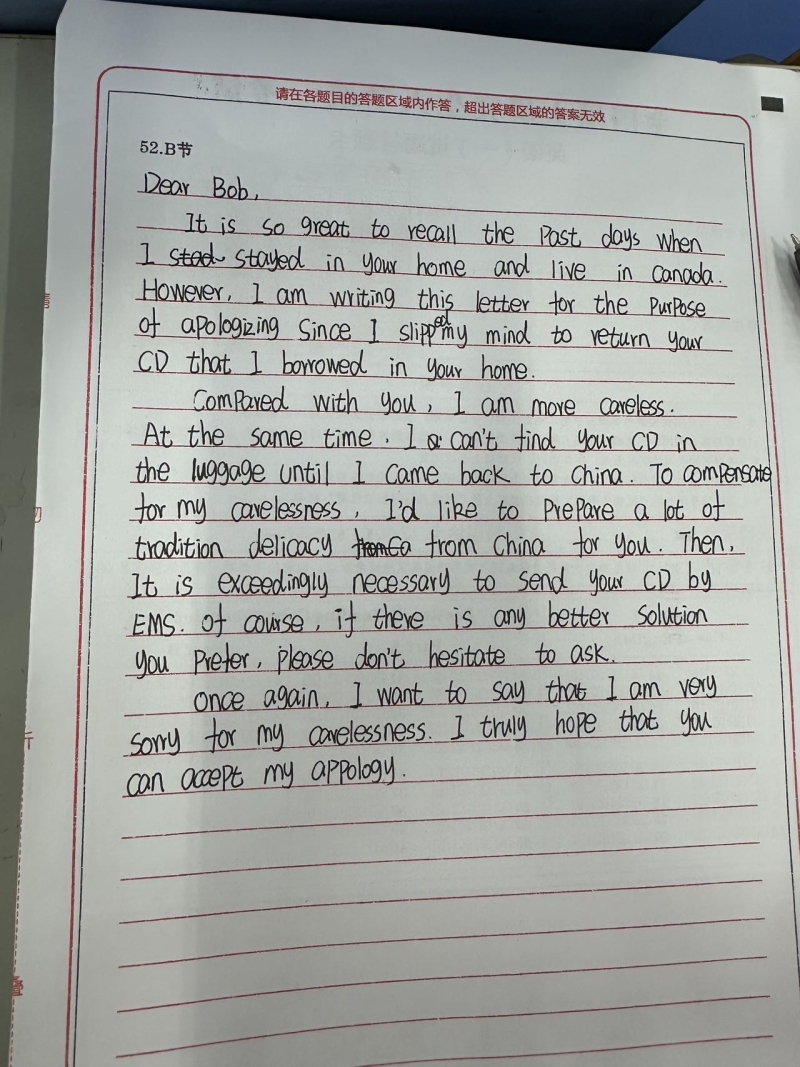 请在各题目的答题区域内作答，超出答题区域的答案无效
52.B节
Dear Bob,
It is so great to recall the past days when
I stayed in your home and live in Canada.
However, I am writing this letter for the purpose
of apologizing since I slipped my mind to return your
CD that I borrowed in your home.
Compared with you, I am more careless.
At the same time, I can't find your CD in
the luggage until I came back to China. To compensate
for my carelessness, I'd like to prepare a lot of
tradition delicacy from China for you. Then,
It is exceedingly necessary to send your CD by
EMS. Of course, if there is any better solution
you prefer, please don't hesitate to ask.
Once again, I want to say that I am very
sorry for my carelessness. I truly hope that you
can accept my appology.